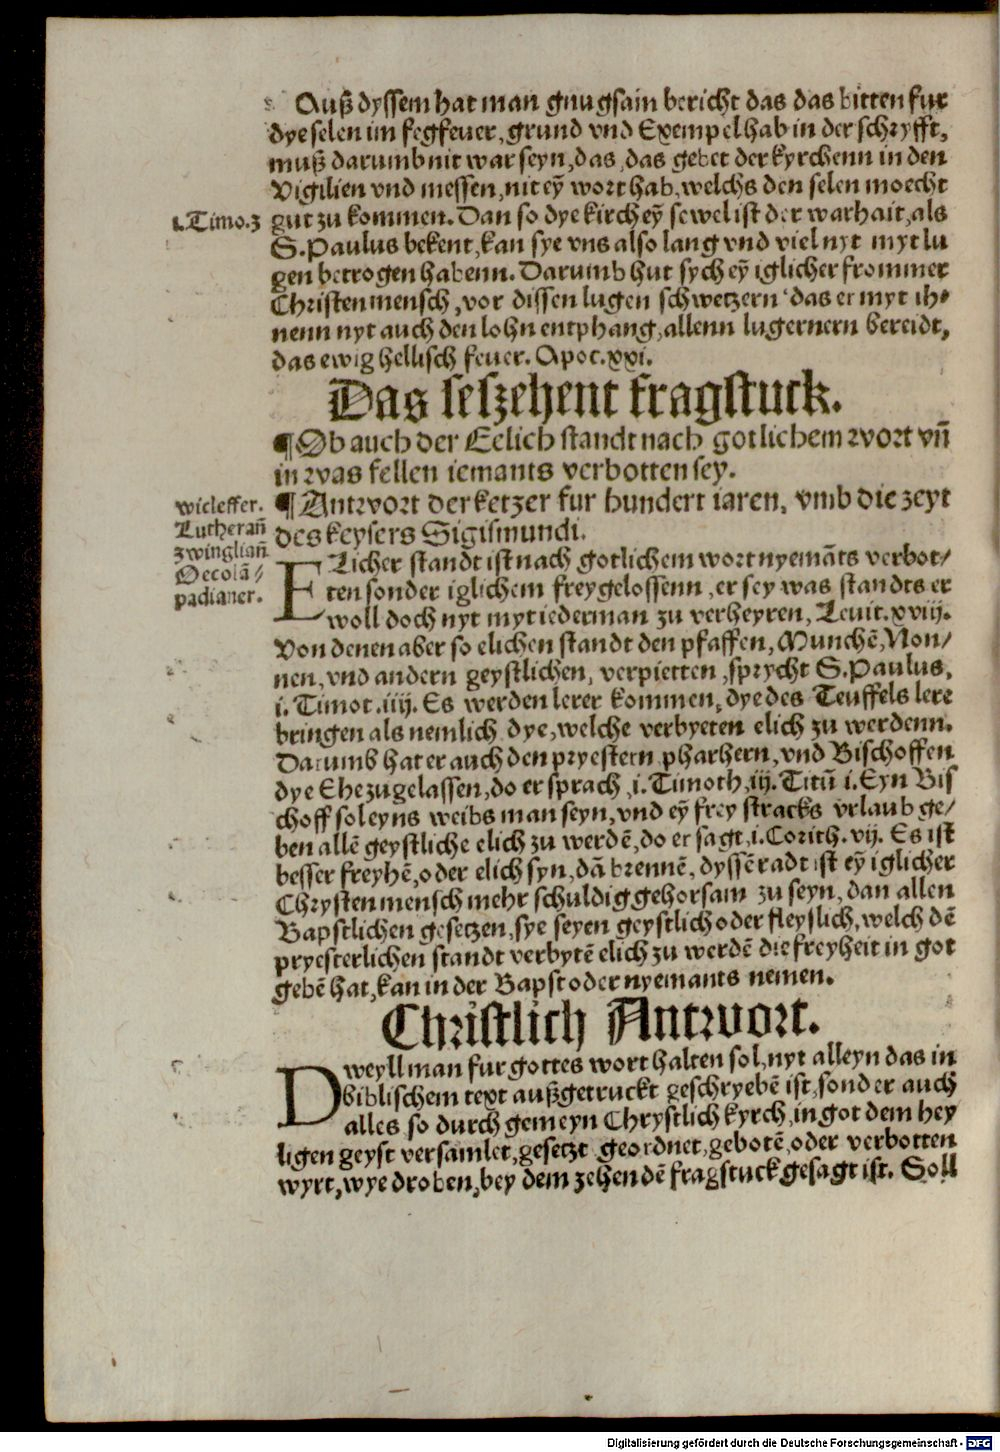 Auß dyssem hat man gnugsam bericht das das bitten fur
dye selen im fegfeuer, grund vnd Exempel hab in der schryfft,
muß darumb nit war seyn, das, das gebet der kyrchenn in den
Vigilien vnd messen, nit eỹ wort hab, welchs den selen moecht
1. Timo. 3 gut zu kommen. Dan so dye kirch eỹ sewel ist der warhait, als
S. Paulus bekent, kan sye vns also lang vnd viel nyt myt lu
gen betrogen habenn. Darumb hut sych eỹ iglicher frommer
Christen mensch, vor dissen lugen schwetzern das er myt ih⸗
nenn nyt auch den lohn entphang, allenn lugernern bereidt,
das ewig hellisch feuer. Apoc. xxi.
Das seszehent fragstuck.
¶ Ob auch der Eelich standt nach gotlichem wort vñ
in was fellen iemants verbotten sey.
wicleffer.
Lutherañ
zwingliañ
Oecolã⸗
padianer.
¶ Antwort der ketzer fur hundert iaren, vmb die zeyt
des keysers Sigismundi.
ELicher standt ist nach gotlichem wort nyemãts verbot⸗
ten sonder iglichem frey gelossenn, er sey was standts er
woll doch nyt myt iederman zu verheyren, Leuit. xviij.
Von denen aber so elichen standt den pfaffen, Munchẽ, Non⸗
nen, vnd andern geystlichen, verpietten, sprycht S. Paulus,
i. Timot. iiij. Es werden lerer kommen, dye des Teuffels lere
bringen als nemlich dye, welche verbyeten elich zu werdenn.
Darumb hat er auch den pryestern pharhern, vnd Bischoffen
dye Ehe zugelassen, do er sprach, i. Timoth. iij. Titũ i. Eyn Bis
choff sol eyns weibs man seyn, vnd eỹ frey stracks vrlaub ge⸗
ben allẽ geystliche elich zu werdẽ, do er sagt, i. Corith. vij. Es ist
besser freyhẽ, oder elich syn, dã brennẽ, dyssẽ radt ist eỹ iglicher
Chrysten mensch mehr schuldig gehorsam zu seyn, dan allen
Bapstlichen gesetzen, sye seyen geystlich oder fleyslich, welch dẽ
pryesterlichen standt verbytẽ elich zu werdẽ die freyheit in got
gebẽ hat, kan in der Bapst oder nyemants nemen.
Christlich Antwort.
DWeyll man fur gottes wort halten sol, nyt alleyn das in
biblischem text außgetruckt geschryebẽ ist, sonder auch
alles so durch gemeyn Chrystlich kyrch, in got dem hey
ligen geyst versamlet, gesetzt geordnet, gebotẽ, oder verbotten
wyrt, wye droben, bey dem zehendẽ fragstuck gesagt ist. Soll
Digitalisierung gefördert durch die Deutsche Forschungsgemeinschaft - DFG